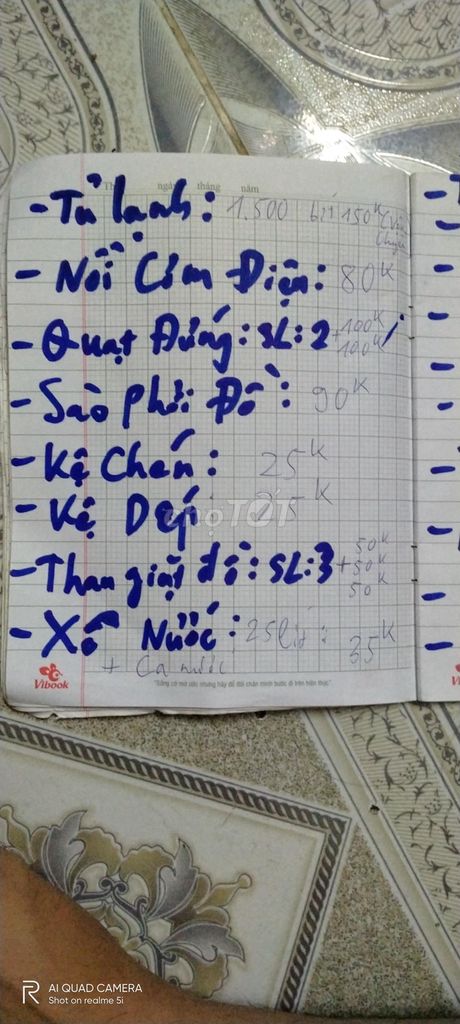 Th ngày tháng năm
- Tủ lạnh: 1.500 bit 150K (Vận chuyển
- Nồi Cơm Điện: 80K
- Quạt Đứng: SL: 2 + 100K 100K
- Sào Phơi Đồ: 90K
- Kệ Chén: 25K
- Kệ Dép 25K
chợTỐT
- Thau giặt đồ: SL: 3 + 50K 50K 50K
- Xô Nước: 25 lít: 35K
+ Ca nước
Vibook
"Sống có mơ ước nhưng hãy để đôi chân mình bước đi trên hiện thực"
R AI QUAD CAMERA
Shot on realme 5i